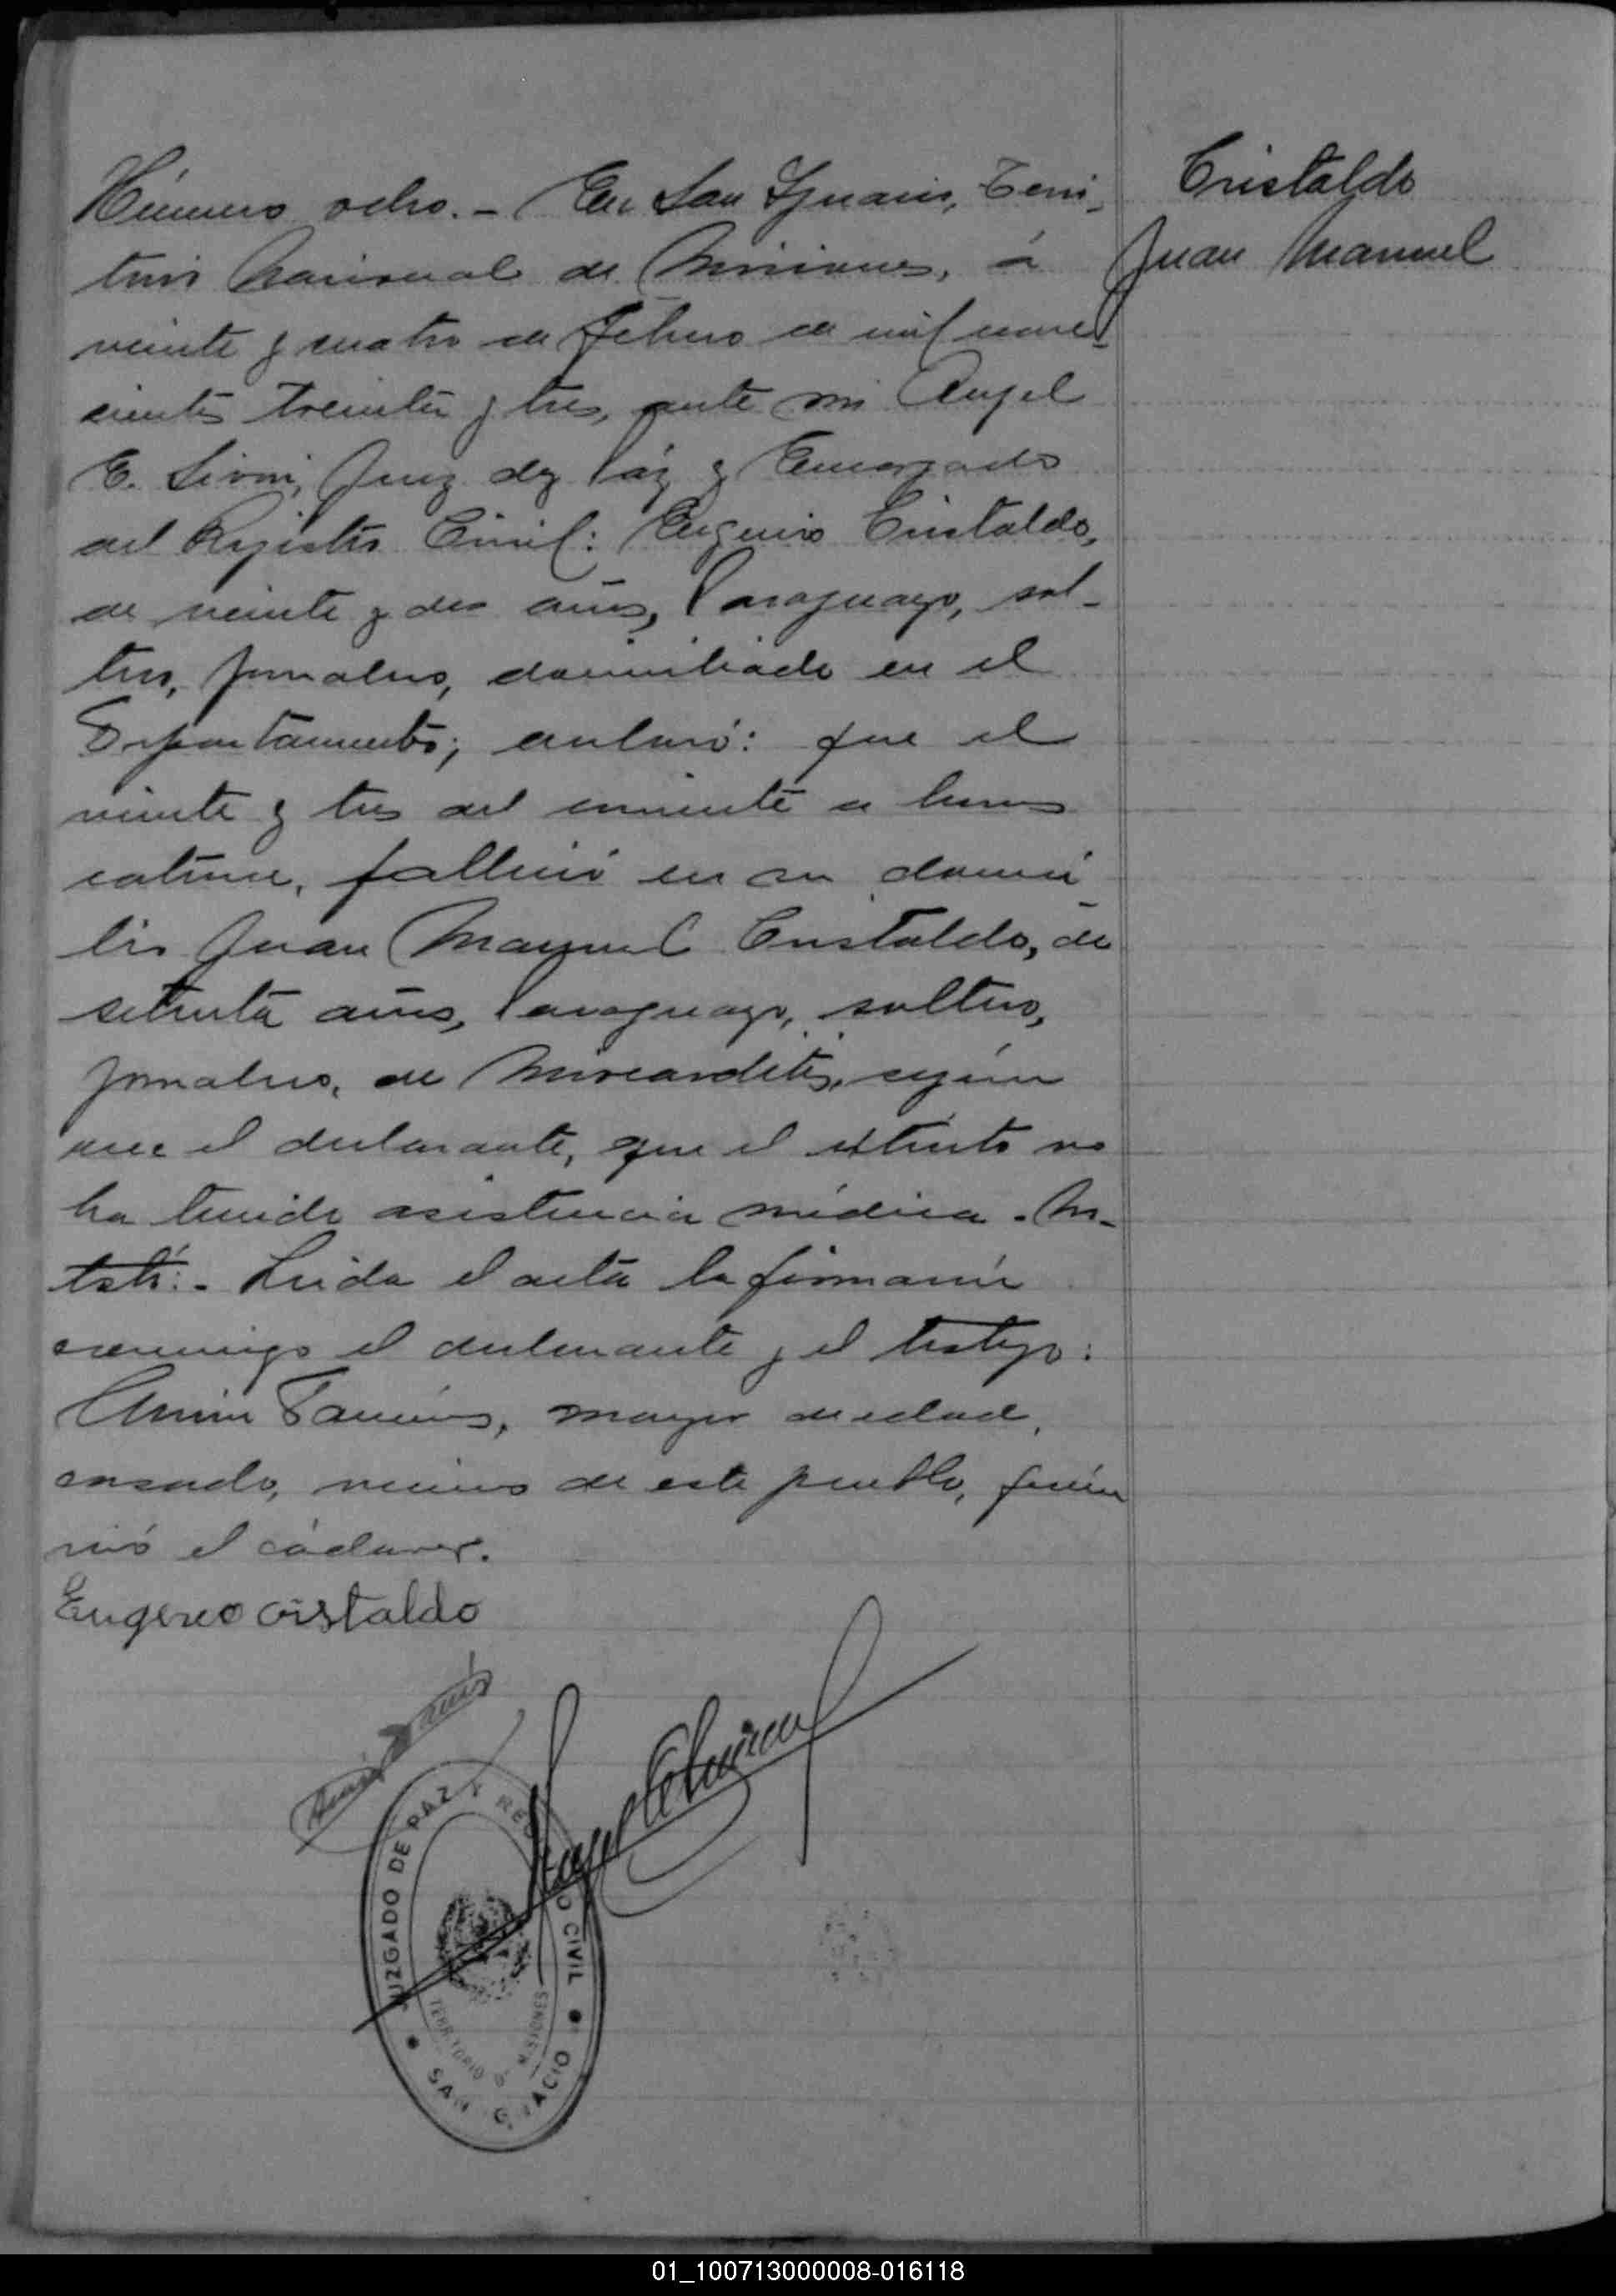 Número ocho.- En San Ignacio, Terri-
torio Nacional de Misiones, á
veinte y cuatro de febrero de mil nove-
cientos treinta y tres, ante mi Angel
E. Juez de Páz y Encargado
del Registro Civil: Eugenio Cristaldo,
de veinte y dos años, Paraguayo, sol-
tero, jornalero, domiciliado en el
Departamento; declaró: que el
veinte y tres del corriente a horas
catorce, falleció en su domici-
lio Juan Manuel Cristaldo, de
setenta años, Paraguayo, soltero,
jornalero, de según
dice el declarante, que el extinto no
ha tenido asistencia médica.
testó:- Leida el acta la firmarón
conmigo el declarante y el testigo:
mayor de edad,
casado, vecino de este pueblo, quién
vió el cádaver.
Eugenio Cristaldo
Cristaldo
Juan Manuel
JUZGADO DE PAZ Y REG O CIVIL
TERRITORIO D. MISIONES
SAN IGNACIO
01_100713000008-016118